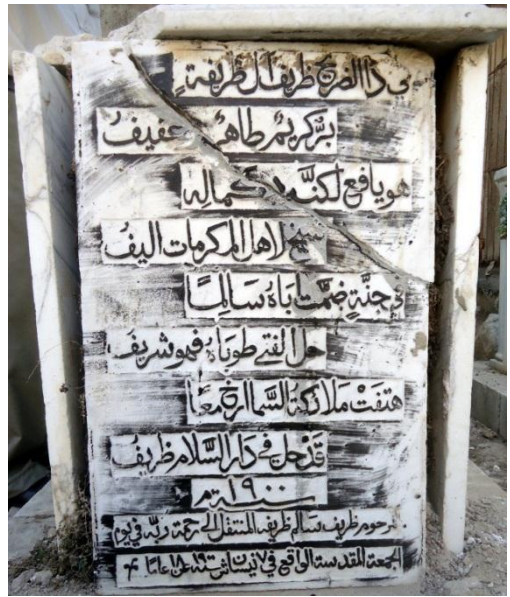 في ذا الضريح ظريف آل ظريفة
برٌّ كريمٌ طاهرٌ عفيفُ
هو يافع لكنَّه كماله
شيخ لاهل المكرمات اليفُ
في جنَّةٍ ضمَّت اباهُ سالِمًا
حل الفتى طوباهُ فهو شريفُ
هتفَتْ ملائكة السما ارخ معًا
قد حل في دار السَّلام ظريفُ
سنة ١٩٠٠م
المرحوم ظريف سالم ظريفه المنتقل الى رحمة ربه في يوم
الجمعة المقدسة الواقع في نيسان سنة عن عامًا